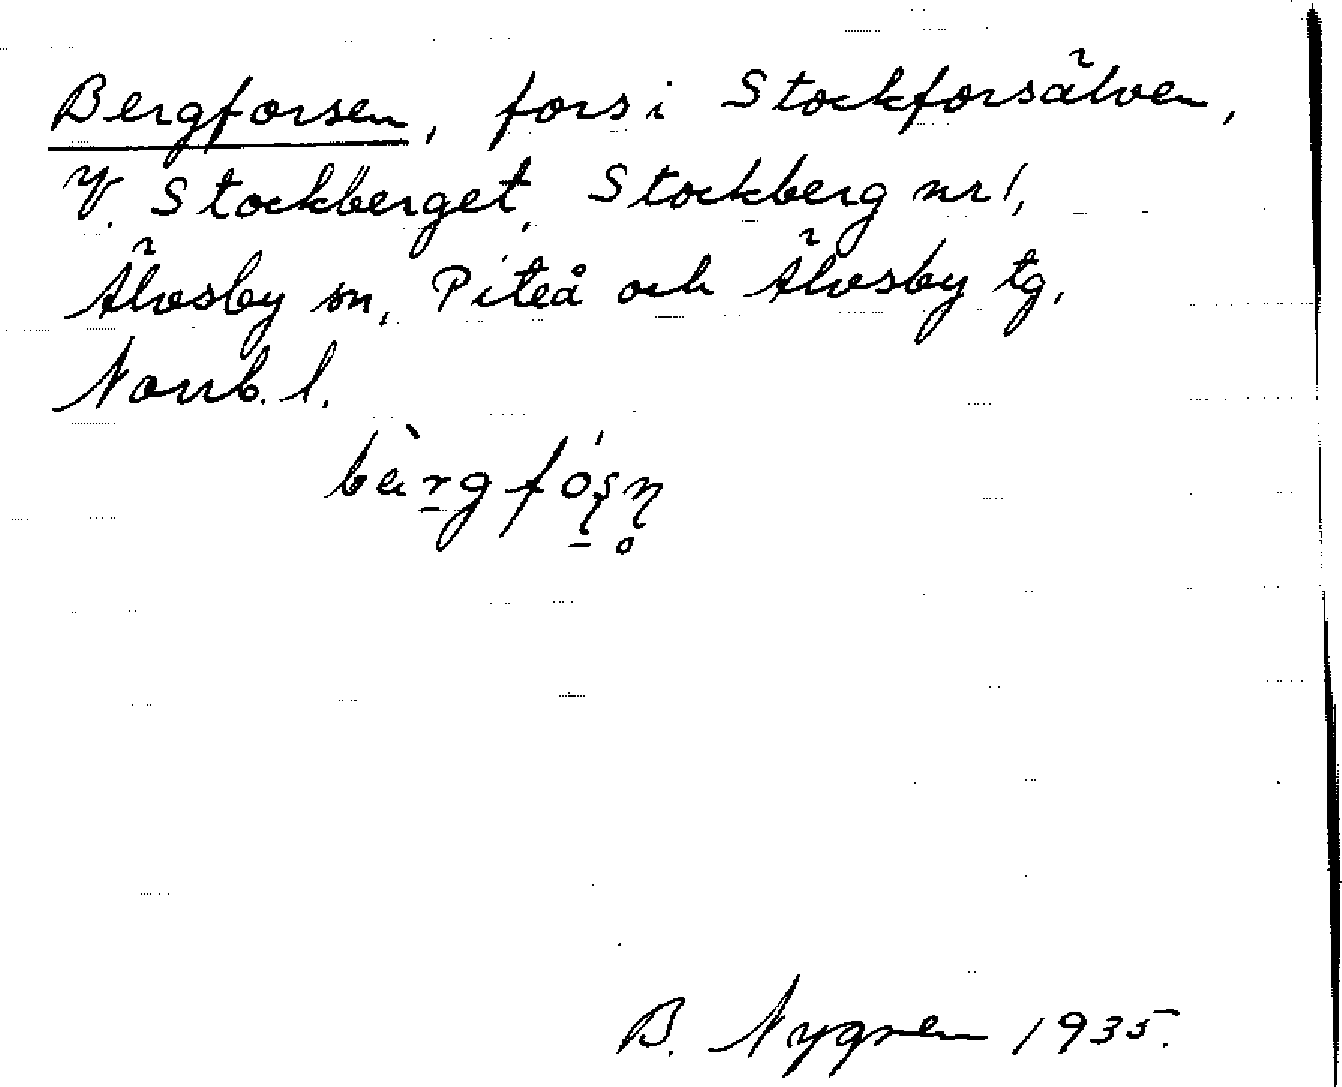 Bergforsen, fors i Stockforsälven,
V. Stockberget, Stockberg nr 1,
Älvsby sn, Piteå och Älvsby tg,
Norrb. l.
bàrgfósn̥
B. Nygren 1935.